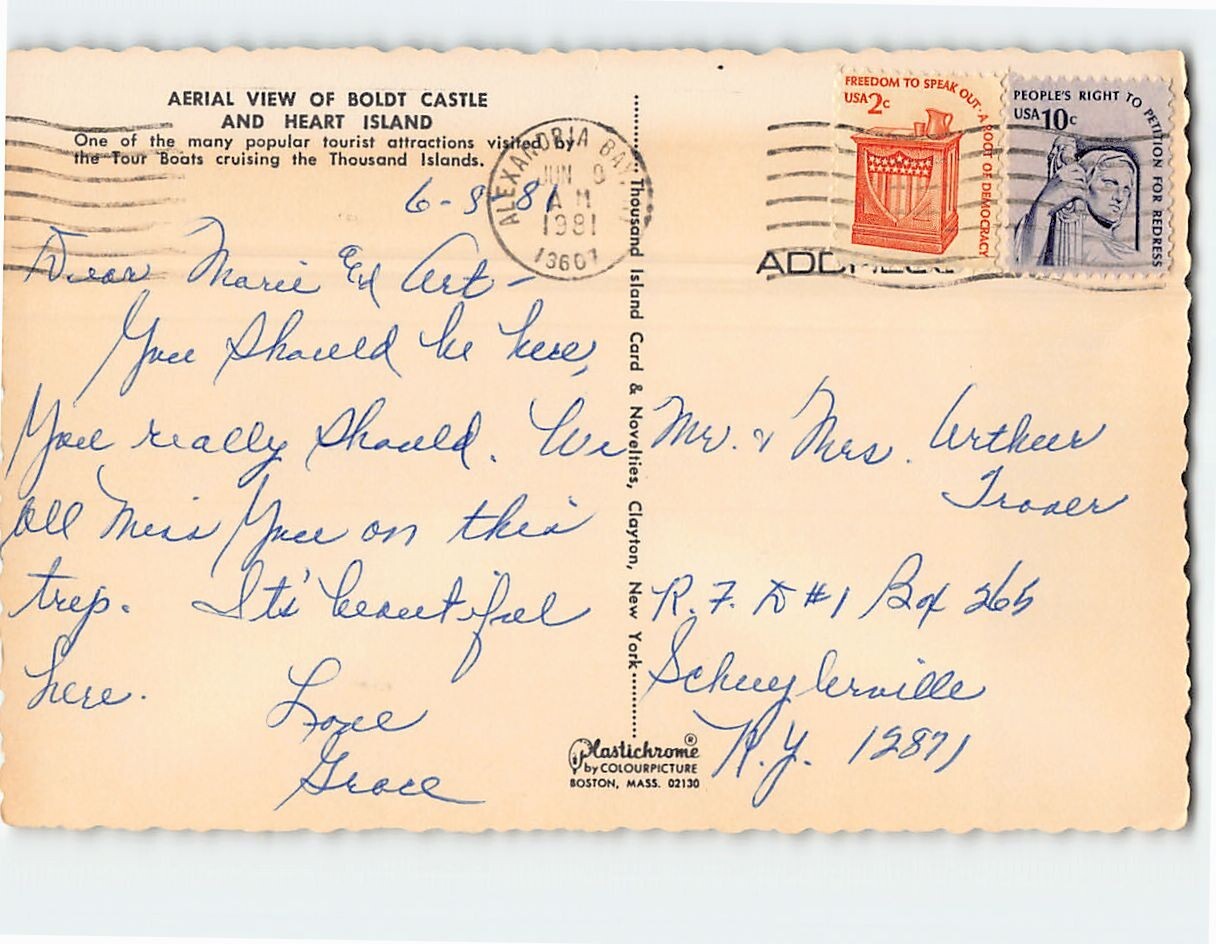 AERIAL VIEW OF BOLDT CASTLE
AND HEART ISLAND
One of the many popular tourist attractions visited by
the Tour Boats cruising the Thousand Islands.
6-8 81
Dear Marie and Art -
You should be here,
You really should. We
all miss You on this
trip. Its' beautiful
here.
Love
Grace
ALEXANDRIA BAY
JUN
AM
1981
13607
Thousand Island Card & Novelties, Clayton, New York
Plastichrome®
by COLOURPICTURE
BOSTON, MASS. 02130
FREEDOM TO SPEAK OUT·A ROOT OF DEMOCRACY
USA 2c
PEOPLE'S RIGHT TO PETITION FOR REDRESS
USA 10c
ADDRESS
Mr. & Mrs. Arthur
R. F. D #1 Box 265
Schuylerville
N.Y. 12871